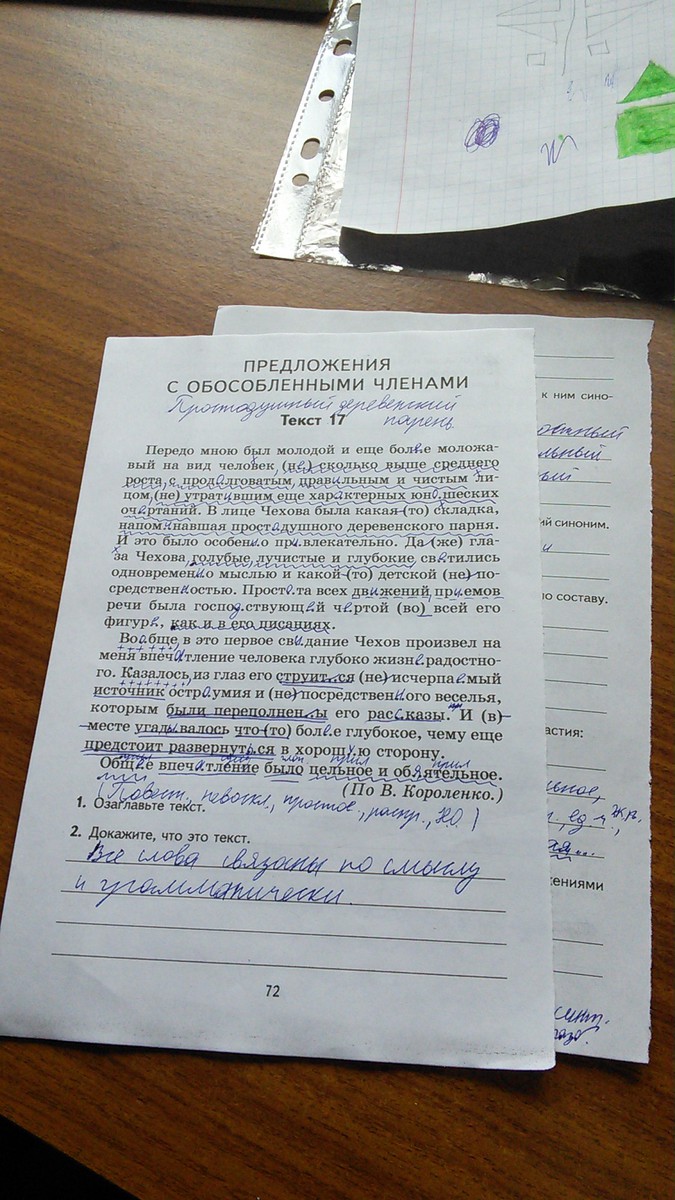 ПРЕДЛОЖЕНИЯ
С ОБОСОБЛЕННЫМИ ЧЛЕНАМИ
Простодушный деревенский
парень
Текст 17
Передо мною был молодой и еще более моложа-
вый на вид человек, (не) сколько выше среднего
роста, с продолговатым, правильным и чистым ли-
цом, (не) утратившим еще характерных юношеских
очертаний. В лице Чехова была какая-(то) складка,
напоминавшая простодушного деревенского парня.
И это было особенно привлекательно. Да (же) гла-
за Чехова, голубые, лучистые и глубокие, светились
одновременно мыслью и какой-(то) детской (не) по-
средственностью. Простота всех движений, приемов
речи была господствующей чертой (во) всей его
фигуре, как и в его писаниях.
Вообще, в это первое свидание Чехов произвел на
меня впечатление человека глубоко жизнерадостно-
го. Казалось, из глаз его струится (не) исчерпаемый
источник остроумия и (не) посредственного веселья,
которым были переполнены его рассказы. И (в)
месте угадывалось что-(то) более глубокое, чему еще
предстоит развернуться в хорошую сторону.
прил сущ гл прил прил
Общее впечатление было цельное и обаятельное.
(По В. Короленко.)
(Повест., невоскл., простое, распр., )
1. Озаглавьте текст.
2. Докажите, что это текст.
Все слова связаны по смыслу
и грамматически.
72
к ним сино-
ий синоним.
по составу.
астия:
ед. ч.,
ж.р.
жениями